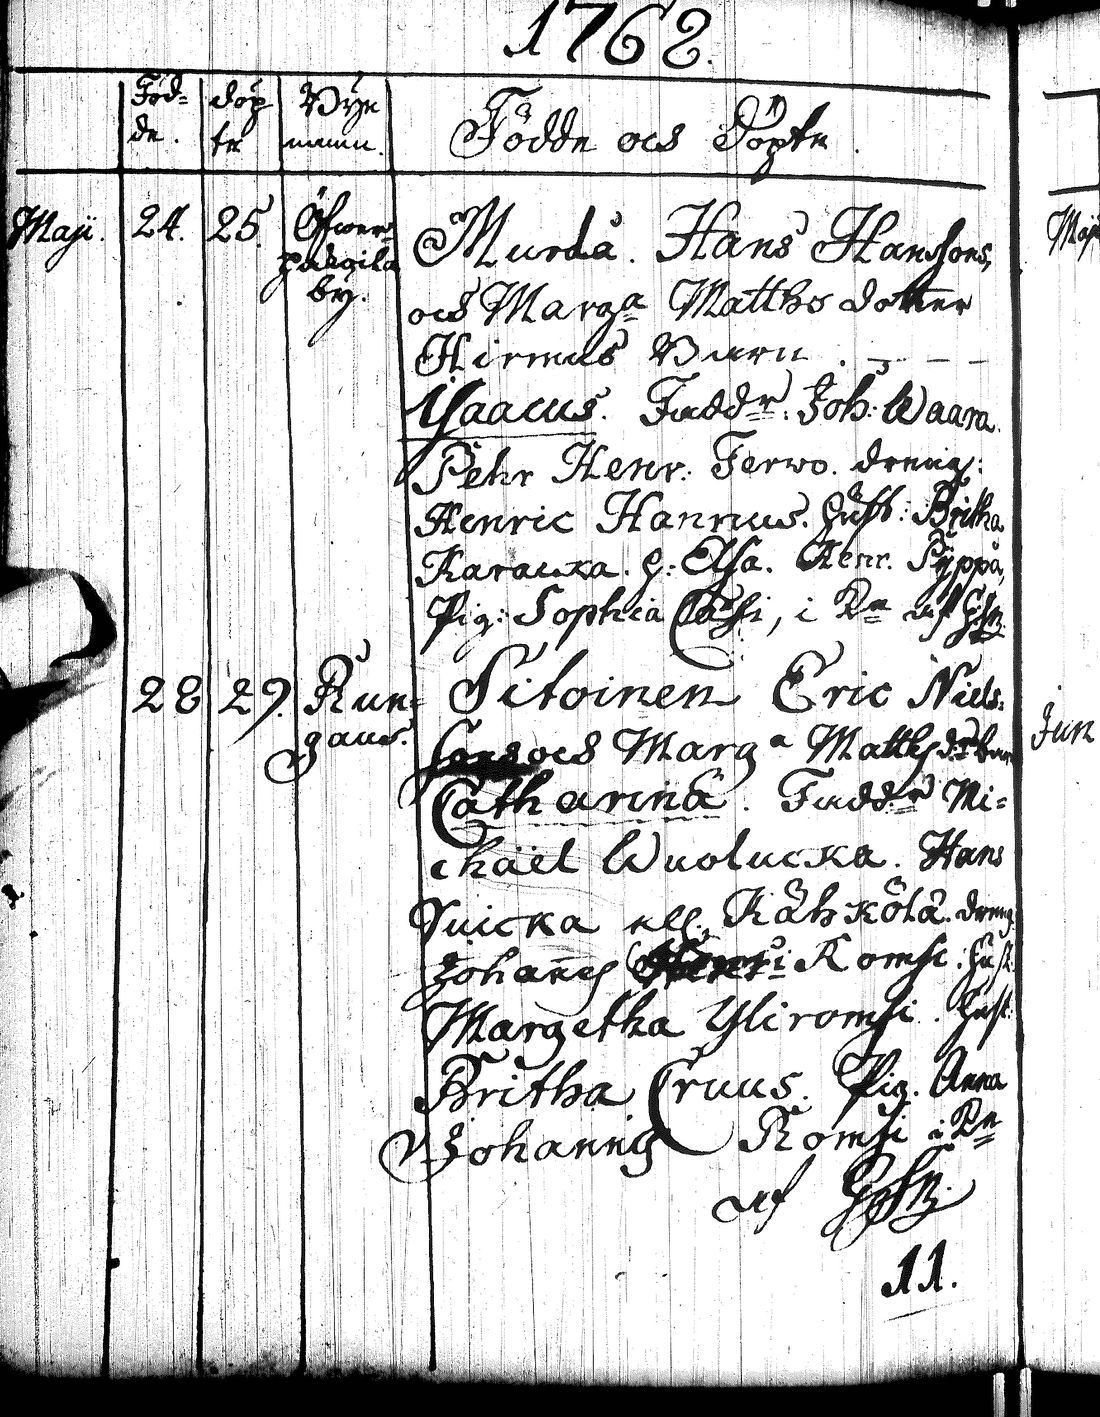 1762.
Föd=
de.
döp
te
Byar
namn.
Födde och Döpte.
Maji. 24. 25. Öfwer
by.
Murda. Hans Hanssons,
och Marga Matths dotter
Hirmus Barn. - - -
Ysaacus. Faddr: Joh: Waara
Pehr Henr. Ferwo. dreng:
Henric Hannus. Hust: Britha
Karauxa. H: Elsa. Henr. Pyppä,
Pig: Sophia Cassi, i Dn af
28 29. Run=
gaus.
Sitoinen Eric Niels=
sons och Marga Matths dr barn
Catharina. Faddr Mi=
chäel Wuolucka. Hans
Suicka ell. Kähkölä. dreng
Johannes Romsi. Hust
Margetha Yliromsi. Hust:
Britha Cruus. Pig. Anna
Johannis Romsi i Dn
af
11.
Maji
Jun